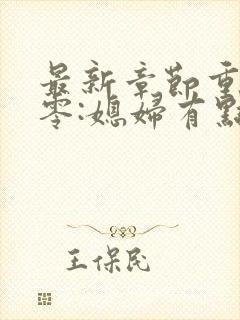 最新章節重
零:媳婦有點
王保民